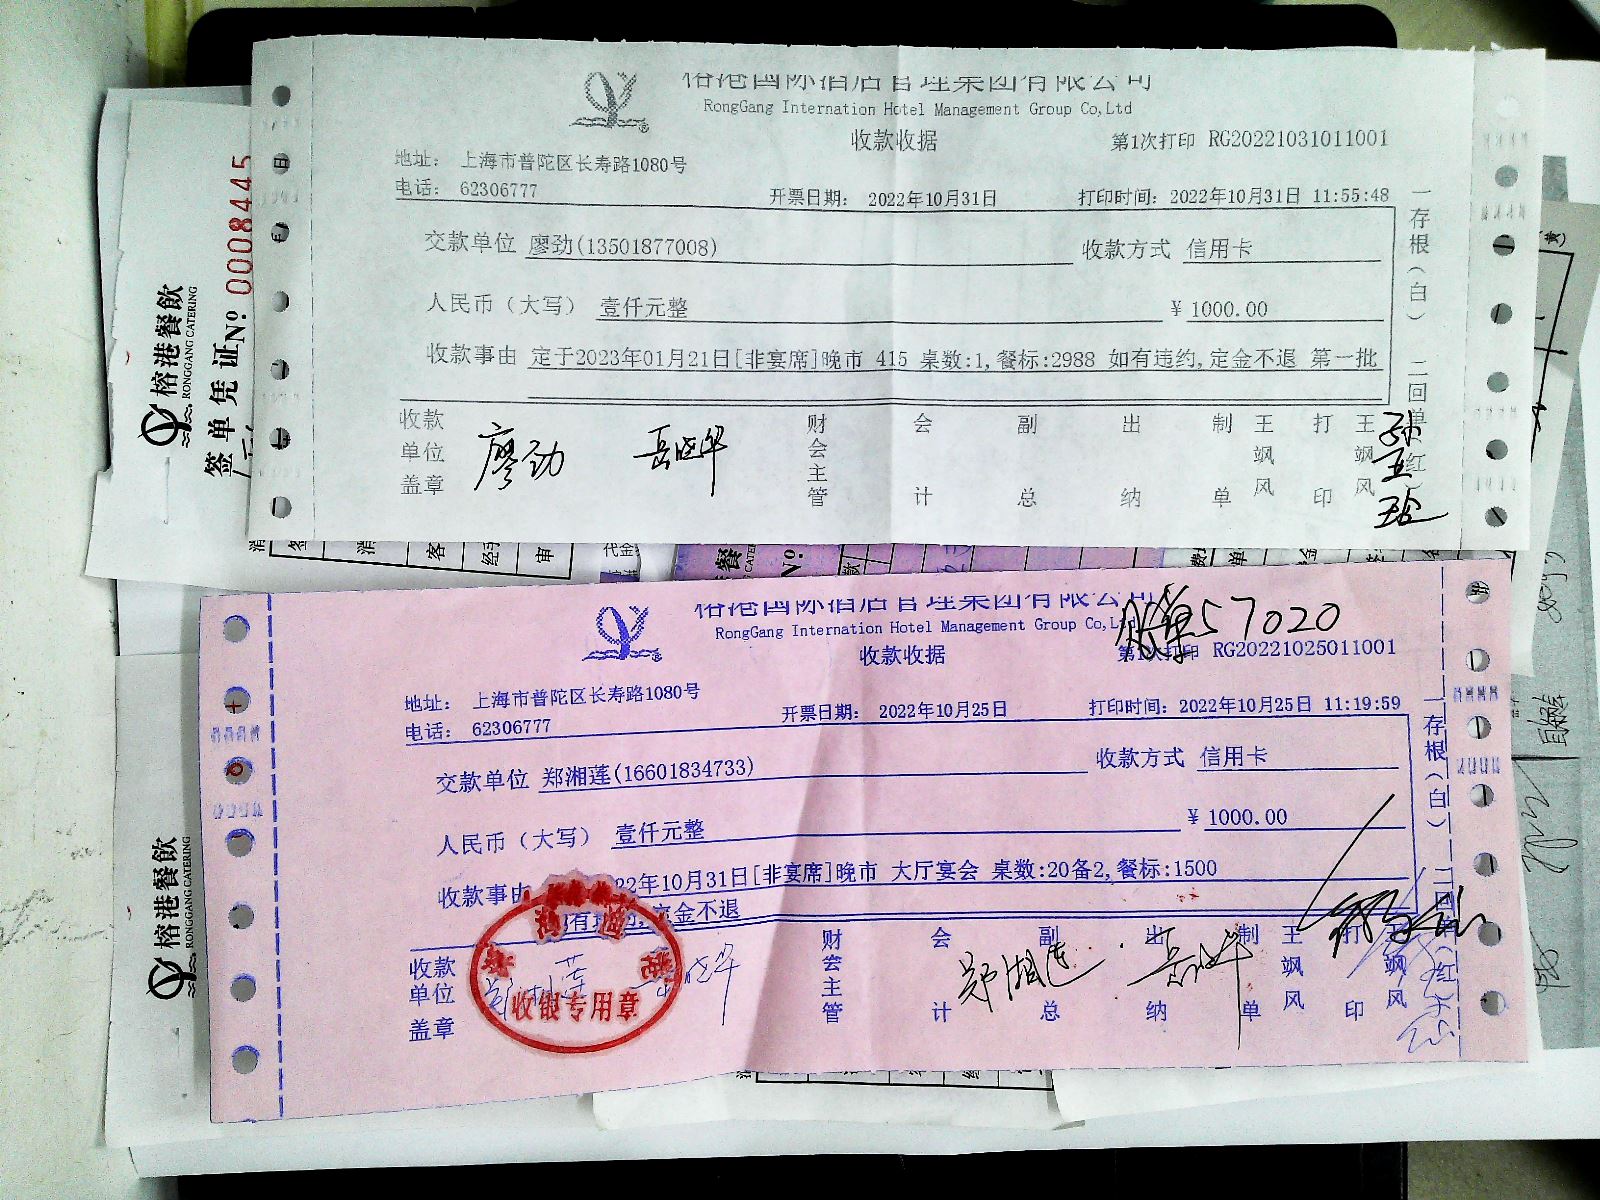 榕港国际酒店管理集团有限公司
RongGang Internation Hotel Management Group Co,Ltd
收款收据
第1次打印 RG20221031011001
地址： 上海市普陀区长寿路1080号
电话： 62306777
开票日期： 2022年10月31日
打印时间： 2022年10月31日 11:55:48
交款单位 廖劲(13501877008)
收款方式 信用卡
人民币（大写） 壹仟元整
¥ 1000.00
收款事由 定于2023年01月21日[非宴席]晚市 415 桌数:1,餐标:2988 如有违约,定金不退 第一批
收款单位盖章 廖劲 岳晓华
财会主管 会计 副总 出纳 制单 王飒风 打印 王飒风
一存根（白） 二回单（红
榕港餐飲
RONGGANG CATERING
签单凭证 Nº 0008445
榕港国际酒店管理集团有限公司
RongGang Internation Hotel Management Group Co,Ltd
57020
收款收据
第1次打印 RG20221025011001
地址： 上海市普陀区长寿路1080号
电话： 62306777
开票日期： 2022年10月25日
打印时间： 2022年10月25日 11:19:59
交款单位 郑湘莲(16601834733)
收款方式 信用卡
人民币（大写） 壹仟元整
¥ 1000.00
收款事由 22年10月31日[非宴席]晚市 大厅宴会 桌数:20备2,餐标:1500
有违约,定金不退
收款单位盖章
收银专用章
财会主管 会计 副总 出纳 制单 王飒风 打印 王飒风
郑湘莲 岳晓华
一存根（白） 二回单（红
榕港餐飲
RONGGANG CATERING